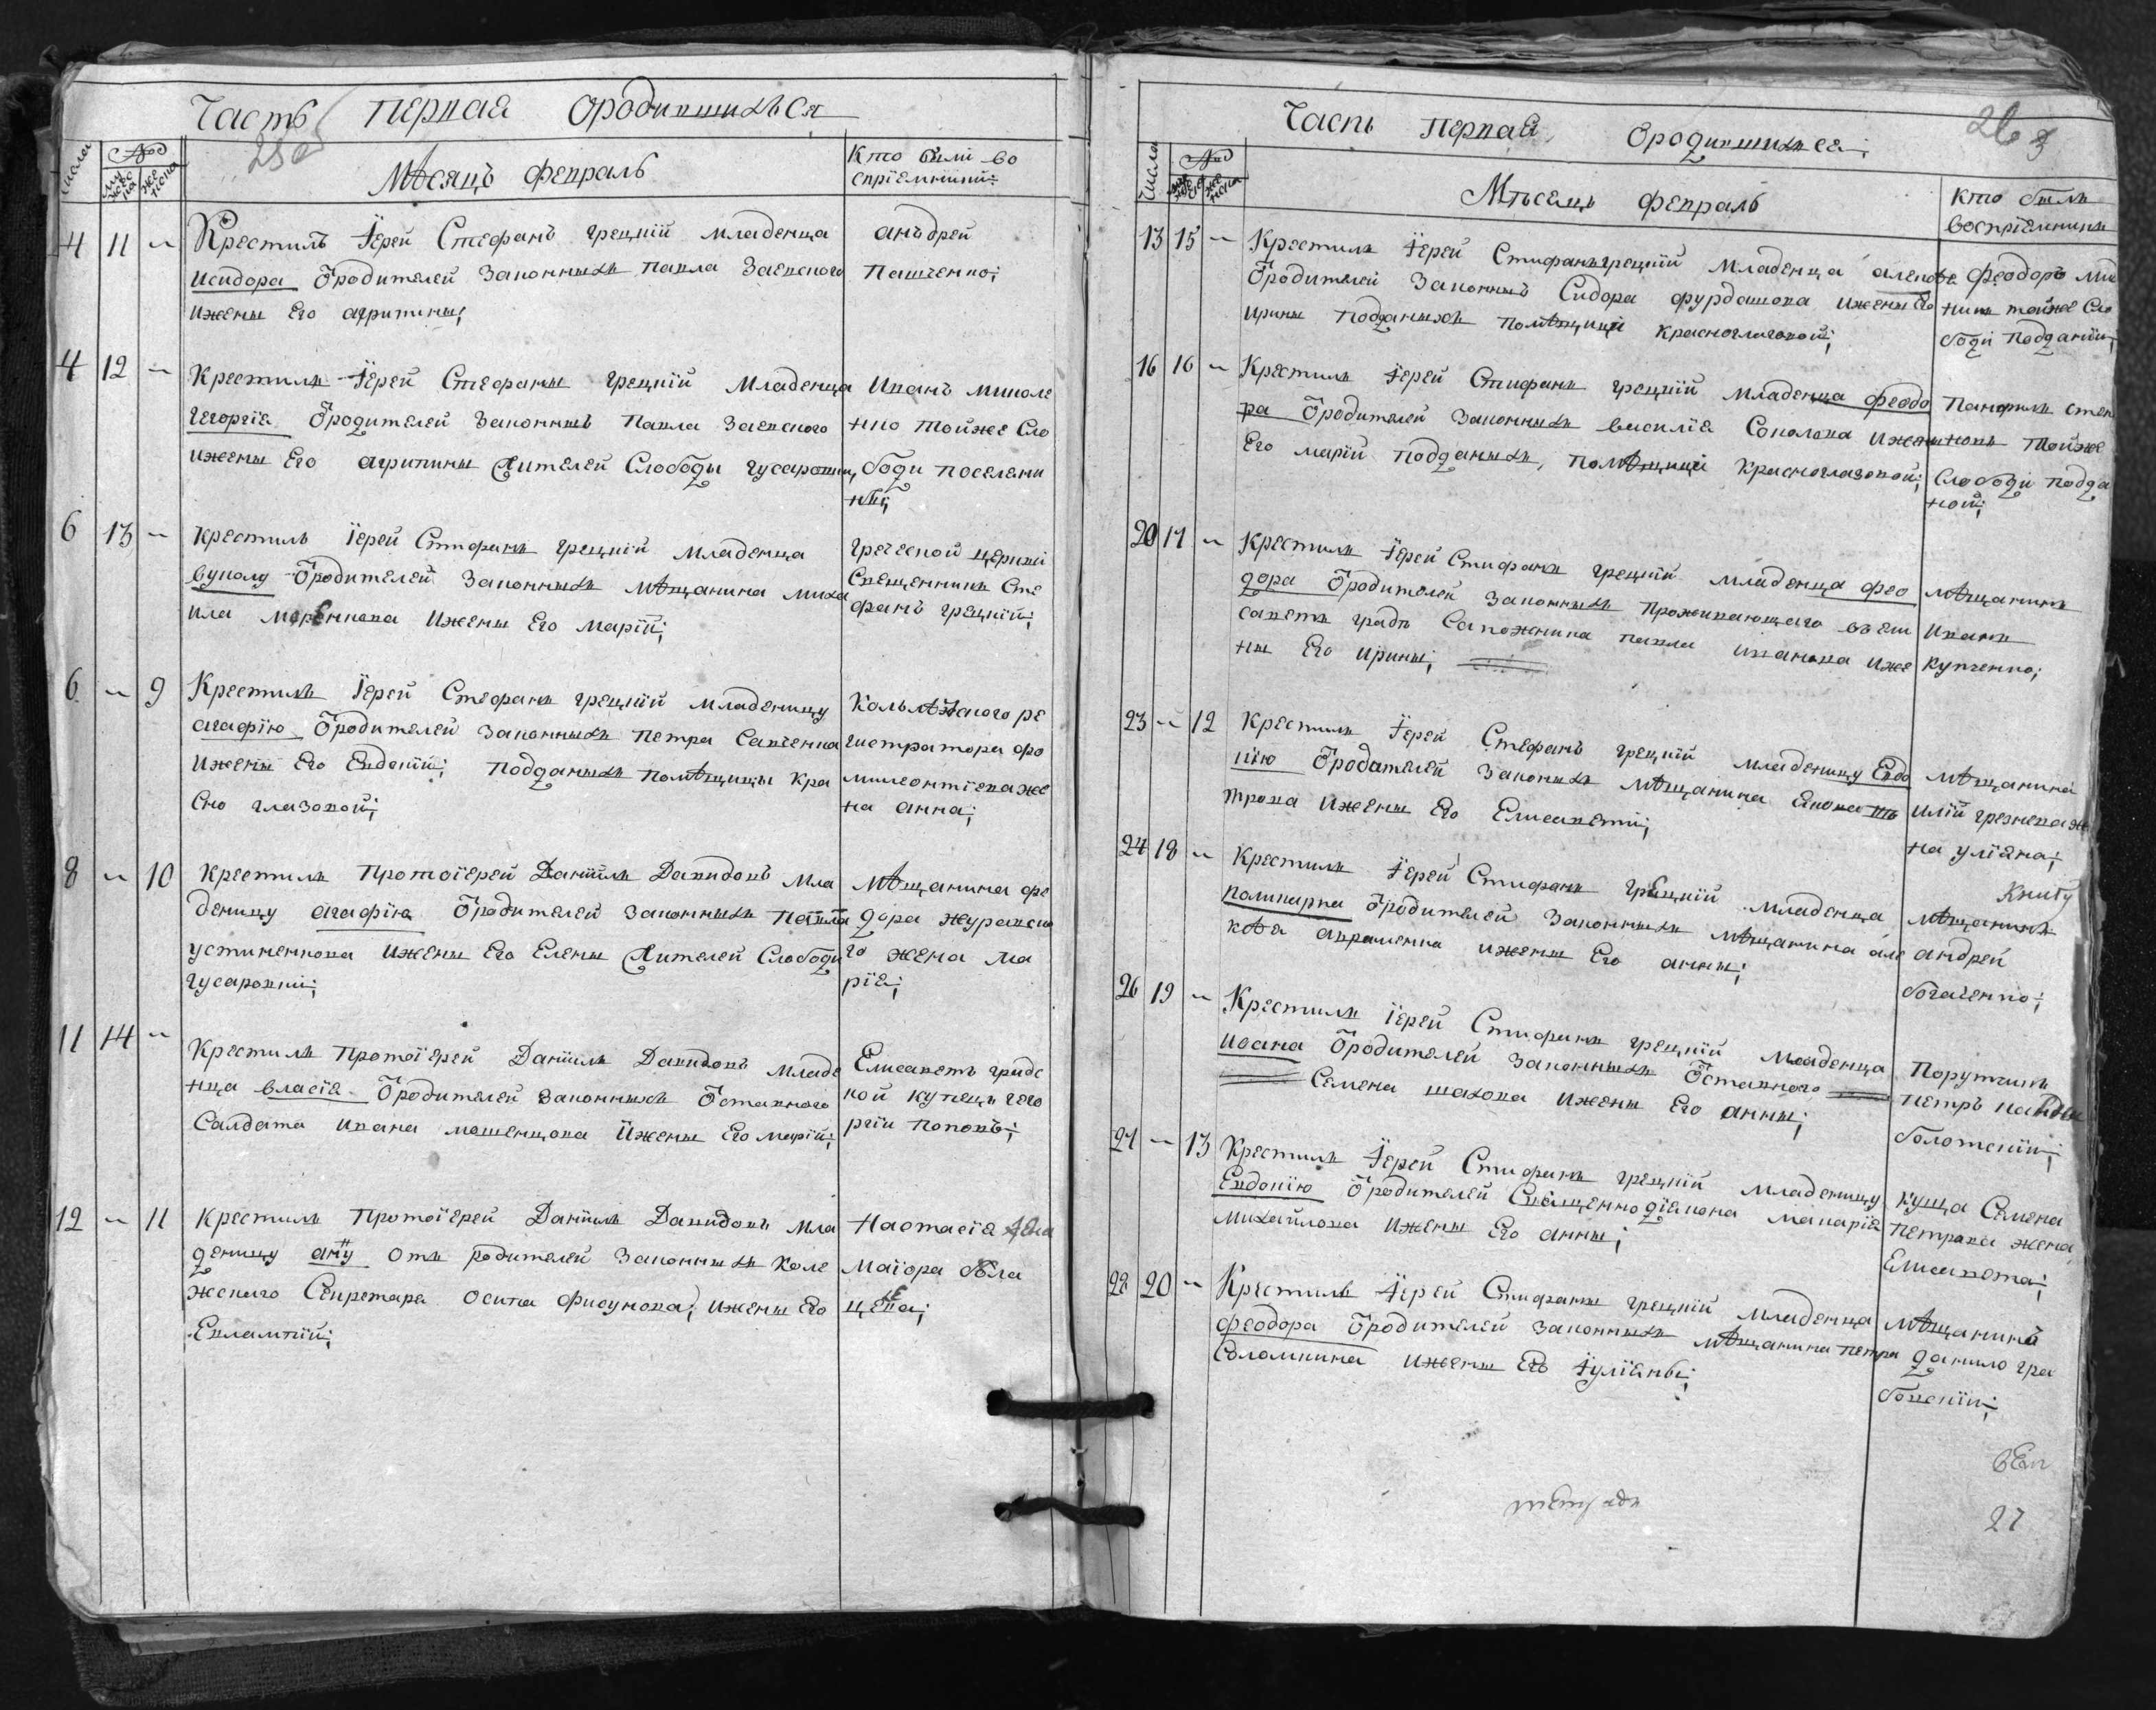 Часть первая ородившихъся
Числа
№
мужеска
женска
Мѣсяцъ февраль
Кто были во
спріемники:
4 11 — Крестилъ Іерей Стефанъ грецкій младенца
исидора Ѿродителей законныхъ павла Заевского
ижены Его агрипины;
анъдрей
пащенко;
4 12 — Крестилъ Іерей Стефанъ грецкій младенца
Георгія Ѿродителей законныхъ павла Заевского
ижены Его агрипины жителей Слободы гусаровки,
иванъ николе
нко тойже Сло
боди поселени
нъ;
6 13 — крестилъ Іерей Стифанъ грецкій младенца
вуколу Ѿродителей законныхъ мѣщанина миха
ила ижены Его марїи;
греческой церкви
Священникъ Сте
фанъ грецкій;
6 — 9 Крестилъ Іерей Стефанъ грецкій младеницу
агафїю Ѿродителей законныхъ петра Савченка
ижены Его Евдокїи; подданыхъ помѣщицы кра
сно глазовой;
колѣжского ре
гистратора фо
милеонтїева же
на анна;
8 — 10 Крестилъ протоїерей Данїилъ Давидовъ мла
деницу агафїю Ѿродителей законныхъ павла
устименкова ижены Его Елены жителей Слободи
гусаровки;
мѣщанина фе
дора журавско
го жена ма
рїя;
11 14 — Крестилъ протоїерей Данїилъ Давидовъ младе
нца власїя Ѿродителей законныхъ Ѿставного
Салдата ивана мошенцова ижены Его марїи;
Елисаветъ градс
кой купецъ гео
ргїи поповъ;
12 — 11 крестилъ протоїерей Данїилъ Давидовъ мла
деницу анну отъ родителей законныхъ коле
жскаго Секретара осипа фисунова; ижены Его
Евлампїи;
настасїя жена
маїора
Часть первая ородившихъся;
26
Числа
№
мужеска
женска
Мѣсецъ февраль
кто былъ
воспріемникъ
13 15 — Крестилъ Іерей Стифанъ грецкій младенца алексѣя
Ѿродителей законныхъ Сидора фурдашова ижены Его
ирины подданыхъ помѣщици красноглазовой;
феодоръ
никъ тойже Сло
боди подданїи;
16 16 — Крестилъ Іерей Стифанъ грецкій младенца феодо
ра Ѿродителей законныхъ василїя Соколова ижены
Его марїи подданыхъ, помѣщици красноглазовой;
панфилъ степ
новъ тойже
Слободи подда
ной;
20 17 — Крестилъ Іерей Стифанъ грецкій младенца фео
дора Ѿродителей законныхъ проживающаго въ ели
саветъ градѣ Сапожника павла иванова иже
ны Его ирины;
мѣщанинъ
иванъ
купченко;
23 — 12 Крестилъ Іерей Стефанъ грецкій младеницу Евдо
кїю Ѿродителей законныхъ мѣщанина якова пе
трова ижены Его Елисавети;
мѣщанина
илїи грезнева же
на улїяна;
24 18 — Крестилъ Іерей Стифанъ грецкій младенца
поликарпа Ѿродителей законныхъ мѣщанина але
ксѣя авраменка ижены Его анны;
мѣщанинъ
андрей
богаченко;
книгу
26 19 — Крестилъ Іерей Стифанъ грецкій младенца
иоана Ѿродителей законныхъ Ѿставного
Семена шахова ижены Его анны;
порутчикъ
петръ
болотскїи;
27 — 13 Крестилъ Іерей Стифанъ грецкій младеницу
Евдокїю Ѿродителей Священнодїякона макарїя
михайлова ижены Его анны;
купца Семена
петрова жена
Елисавета;
28 20 — Крестилъ Іерей Стифанъ грецкій младенца
феодора Ѿродителей законныхъ мѣщанина петра
Соломкина ижены Его Іулїяны;
мѣщанинъ
данило гра
бовскїи;
тетрадь
27